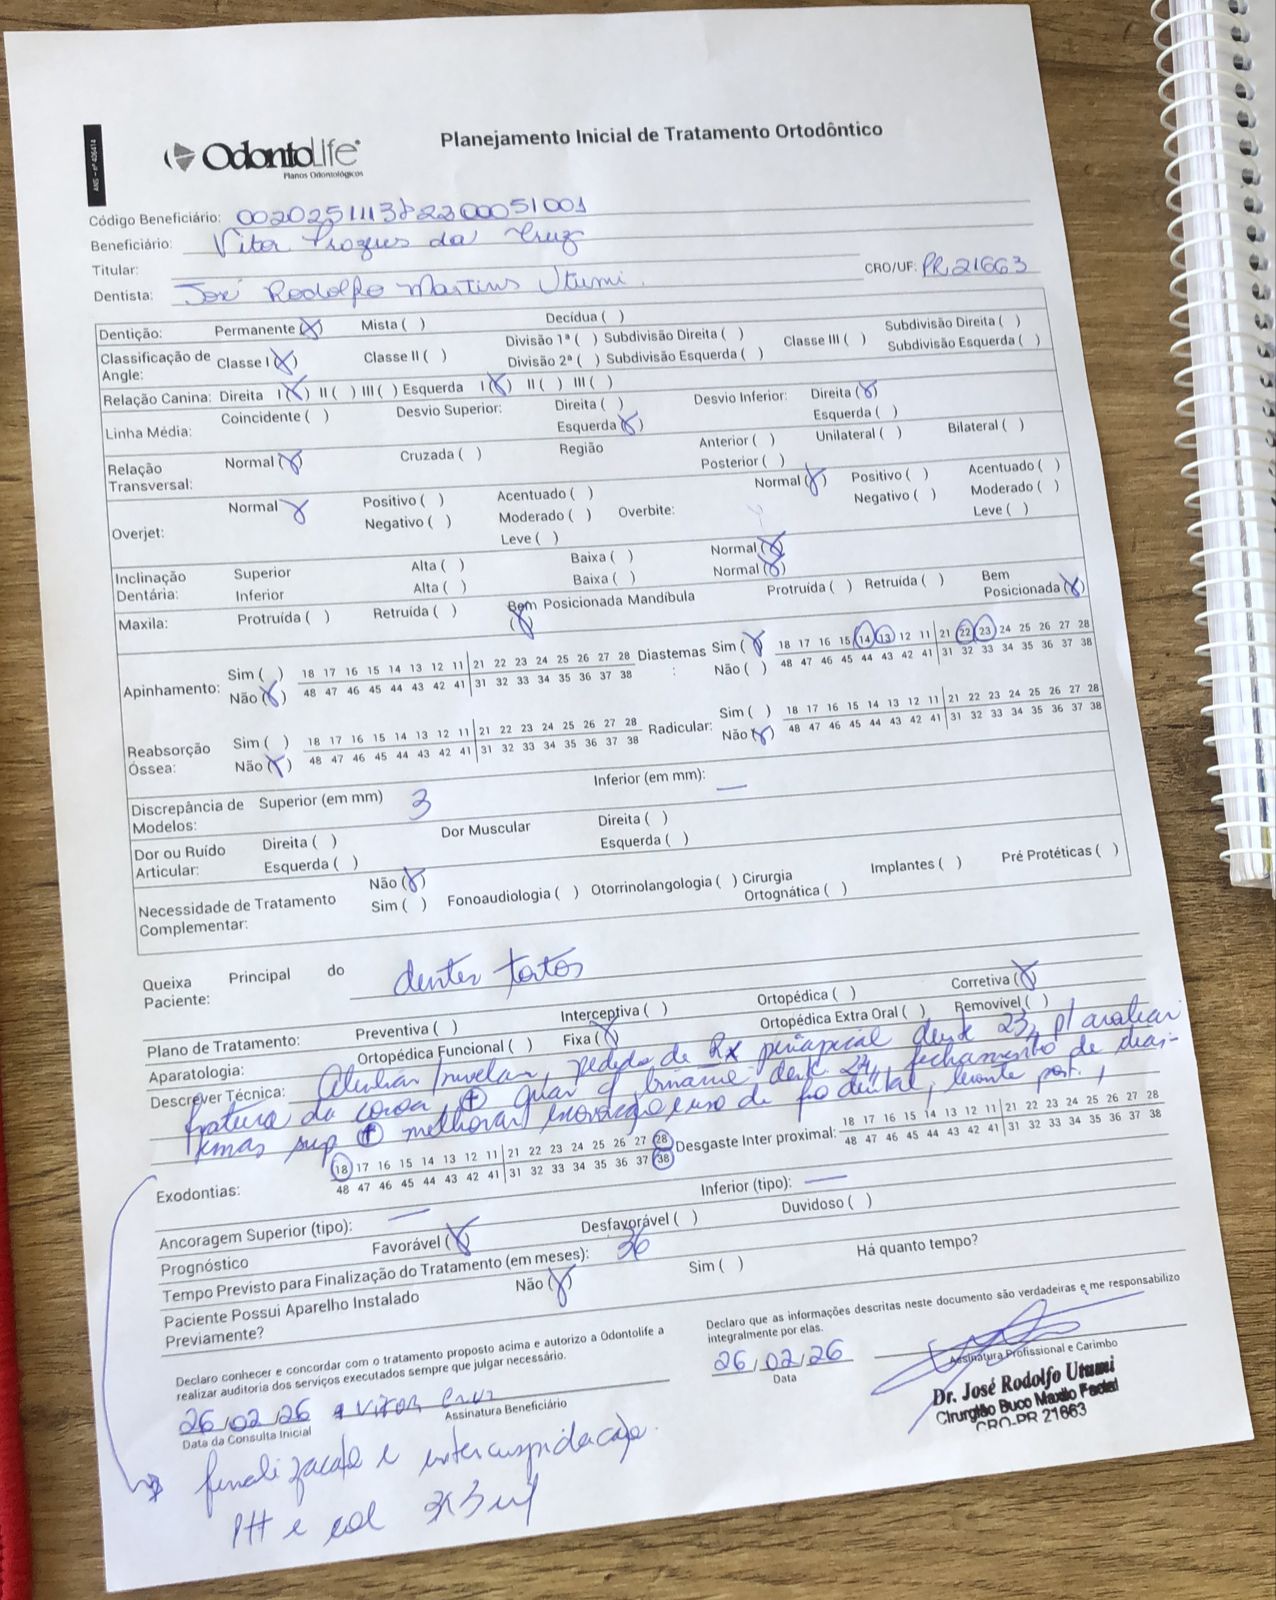 ANS - nº 406414
OdontoLife®
Planos Odontológicos
Planejamento Inicial de Tratamento Ortodôntico
Código Beneficiário: 002025111382200051001
Beneficiário: Vitor da Cruz
Titular:
Dentista: José Rodolfo Martins Utumi. CRO/UF: PR 21663
Dentição: Permanente (X) Mista ( ) Decídua ( )
Classificação de Angle: Classe I (X) Classe II ( ) Divisão 1ª ( ) Subdivisão Direita ( ) Classe III ( ) Subdivisão Direita ( )
Divisão 2ª ( ) Subdivisão Esquerda ( ) Subdivisão Esquerda ( )
Relação Canina: Direita I (X) II ( ) III ( ) Esquerda I (X) II ( ) III ( )
Linha Média: Coincidente ( ) Desvio Superior: Direita ( ) Desvio Inferior: Direita (X)
Esquerda (X) Esquerda ( )
Relação Transversal: Normal (X) Cruzada ( ) Região Anterior ( ) Unilateral ( ) Bilateral ( )
Posterior ( )
Overjet: Normal X Positivo ( ) Acentuado ( ) Overbite: Normal (X) Positivo ( ) Acentuado ( )
Negativo ( ) Moderado ( ) Negativo ( ) Moderado ( )
Leve ( ) Leve ( )
Inclinação Dentária: Superior Alta ( ) Baixa ( ) Normal (X)
Inferior Alta ( ) Baixa ( ) Normal (X)
Maxila: Protruída ( ) Retruída ( ) Bem Posicionada (X) Mandíbula Protruída ( ) Retruída ( ) Bem Posicionada (X)
Apinhamento: Sim ( ) 18 17 16 15 14 13 12 11 21 22 23 24 25 26 27 28 Diastemas: Sim (X) 18 17 16 15 14 13 12 11 21 22 23 24 25 26 27 28
Não (X) 48 47 46 45 44 43 42 41 31 32 33 34 35 36 37 38 Não ( ) 48 47 46 45 44 43 42 41 31 32 33 34 35 36 37 38
Reabsorção Óssea: Sim ( ) 18 17 16 15 14 13 12 11 21 22 23 24 25 26 27 28 Radicular: Sim ( ) 18 17 16 15 14 13 12 11 21 22 23 24 25 26 27 28
Não (X) 48 47 46 45 44 43 42 41 31 32 33 34 35 36 37 38 Não (X) 48 47 46 45 44 43 42 41 31 32 33 34 35 36 37 38
Discrepância de Modelos: Superior (em mm) 3 Inferior (em mm): —
Dor ou Ruído Articular: Direita ( ) Dor Muscular Direita ( )
Esquerda ( ) Esquerda ( )
Necessidade de Tratamento Complementar: Não (X)
Sim ( ) Fonoaudiologia ( ) Otorrinolangologia ( ) Cirurgia Ortognática ( ) Implantes ( ) Pré Protéticas ( )
Queixa Principal do Paciente: dentes tortos
Plano de Tratamento: Preventiva ( ) Interceptiva ( ) Ortopédica ( ) Corretiva (X)
Aparatologia: Ortopédica Funcional ( ) Fixa (X) Ortopédica Extra Oral ( ) Removível ( )
Descrever Técnica: Alinhar/nivelar, pedido de Rx periapical dente 23, p/ avaliar
fratura da coroa, girar dente 24, fechamento de dias-
temas sup melhorar escovação e uso de fio dental, levante post.,
Exodontias: 18 17 16 15 14 13 12 11 21 22 23 24 25 26 27 28 Desgaste Inter proximal: 18 17 16 15 14 13 12 11 21 22 23 24 25 26 27 28
48 47 46 45 44 43 42 41 31 32 33 34 35 36 37 38 48 47 46 45 44 43 42 41 31 32 33 34 35 36 37 38
Ancoragem Superior (tipo): — Inferior (tipo): —
Prognóstico Favorável (X) Desfavorável ( ) Duvidoso ( )
Tempo Previsto para Finalização do Tratamento (em meses): 36
Paciente Possui Aparelho Instalado Previamente? Não (X) Sim ( ) Há quanto tempo?
Declaro conhecer e concordar com o tratamento proposto acima e autorizo a Odontolife a
realizar auditoria dos serviços executados sempre que julgar necessário.
26/02/26 Vitor Cruz
Data da Consulta Inicial Assinatura Beneficiário
Declaro que as informações descritas neste documento são verdadeiras e me responsabilizo
integralmente por elas.
26/02/26
Data Assinatura Profissional e Carimbo
Dr. José Rodolfo Utumi
Cirurgião Buco Maxilo Facial
CRO-PR 21663
finalização e intercuspidação.
PH e col 3x3 inf